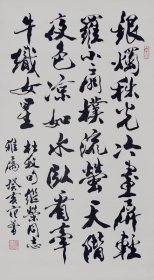 银烛秋光冷画屏轻
罗小扇扑流萤天阶
夜色凉如水卧看牵
牛织女星
杜牧句 继荣同志
雅属 癸亥